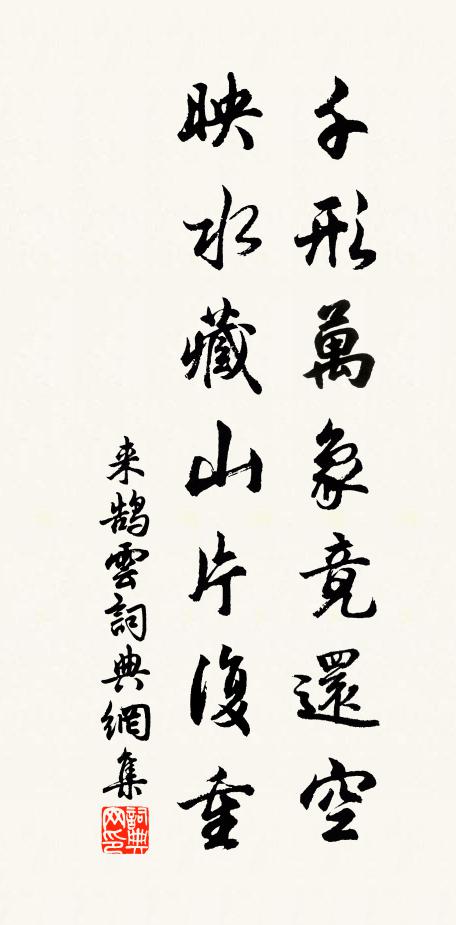 千形萬象竟還空
映水藏山片復重
来鵠雲詞典網集
詞典網印